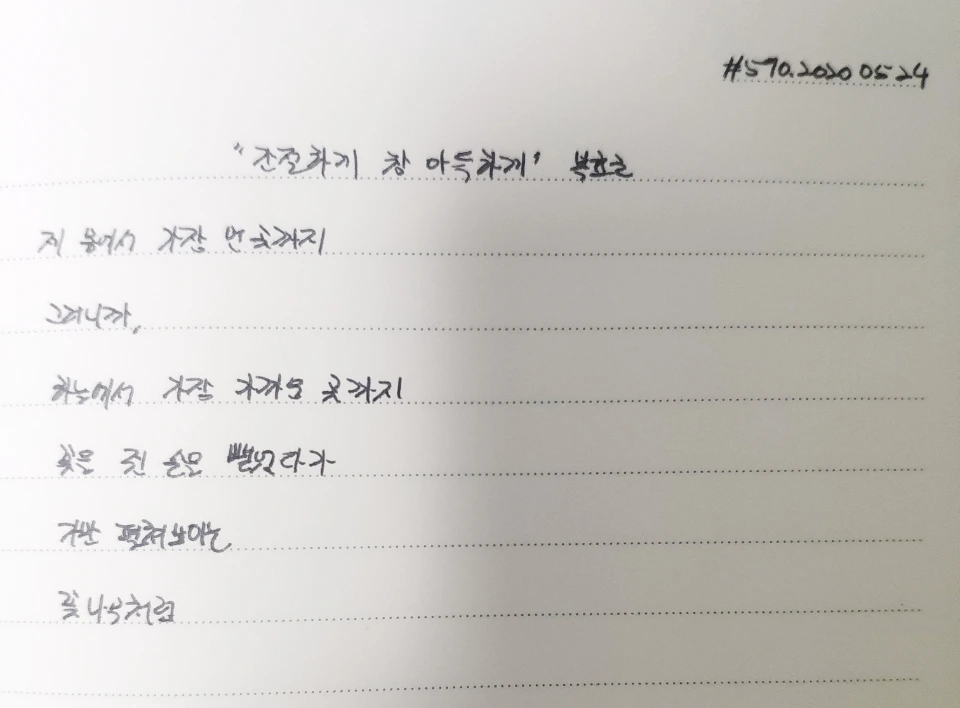 #570.2020 05 24
"간절하게 참 아득하게" 복효근
제 몸에서 가장 먼 곳까지
그러니까,
하늘에서 가장 가까운 곳까지
꽃을 쥔 손을 뻗었다가
가만 펼쳐보이는
꽃나무처럼